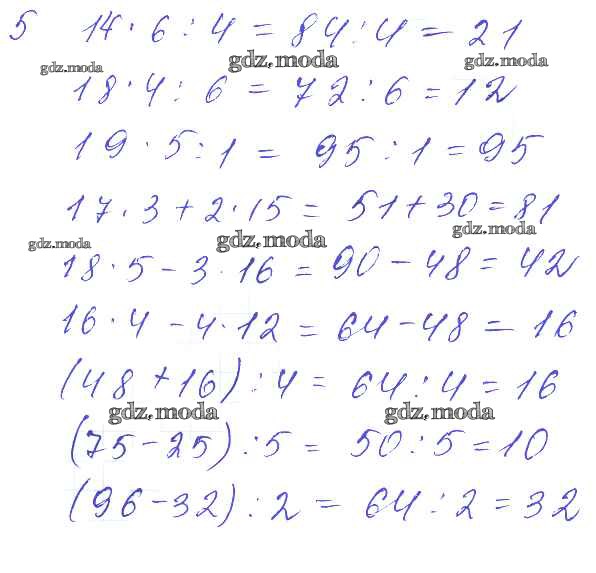 5 14 · 6 : 4 = 84 : 4 = 21
gdz.moda gdz.moda gdz.moda
18 · 4 : 6 = 72 : 6 = 12
19 · 5 : 1 = 95 : 1 = 95
17 · 3 + 2 · 15 = 51 + 30 = 81
gdz.moda gdz.moda gdz.moda
18 · 5 - 3 · 16 = 90 - 48 = 42
16 · 4 - 4 · 12 = 64 - 48 = 16
(48 + 16) : 4 = 64 : 4 = 16
gdz.moda gdz.moda
(75 - 25) : 5 = 50 : 5 = 10
(96 - 32) : 2 = 64 : 2 = 32